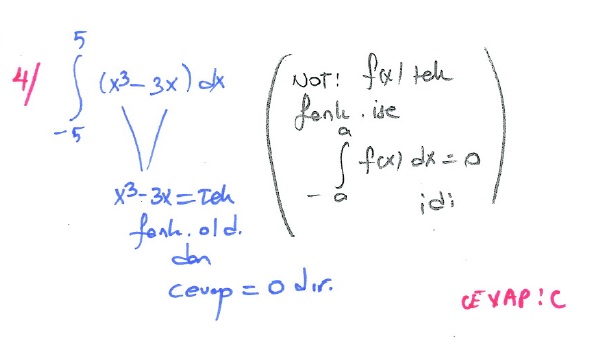 4/ ∫₋₅⁵ (x³ - 3x) dx
x³ - 3x = Tek
fonk. old.
dan
cevap = 0 dır.
NOT! f(x) tek
fonk. ise
∫₋ₐᵃ f(x) dx = 0
idi
CEVAP: C